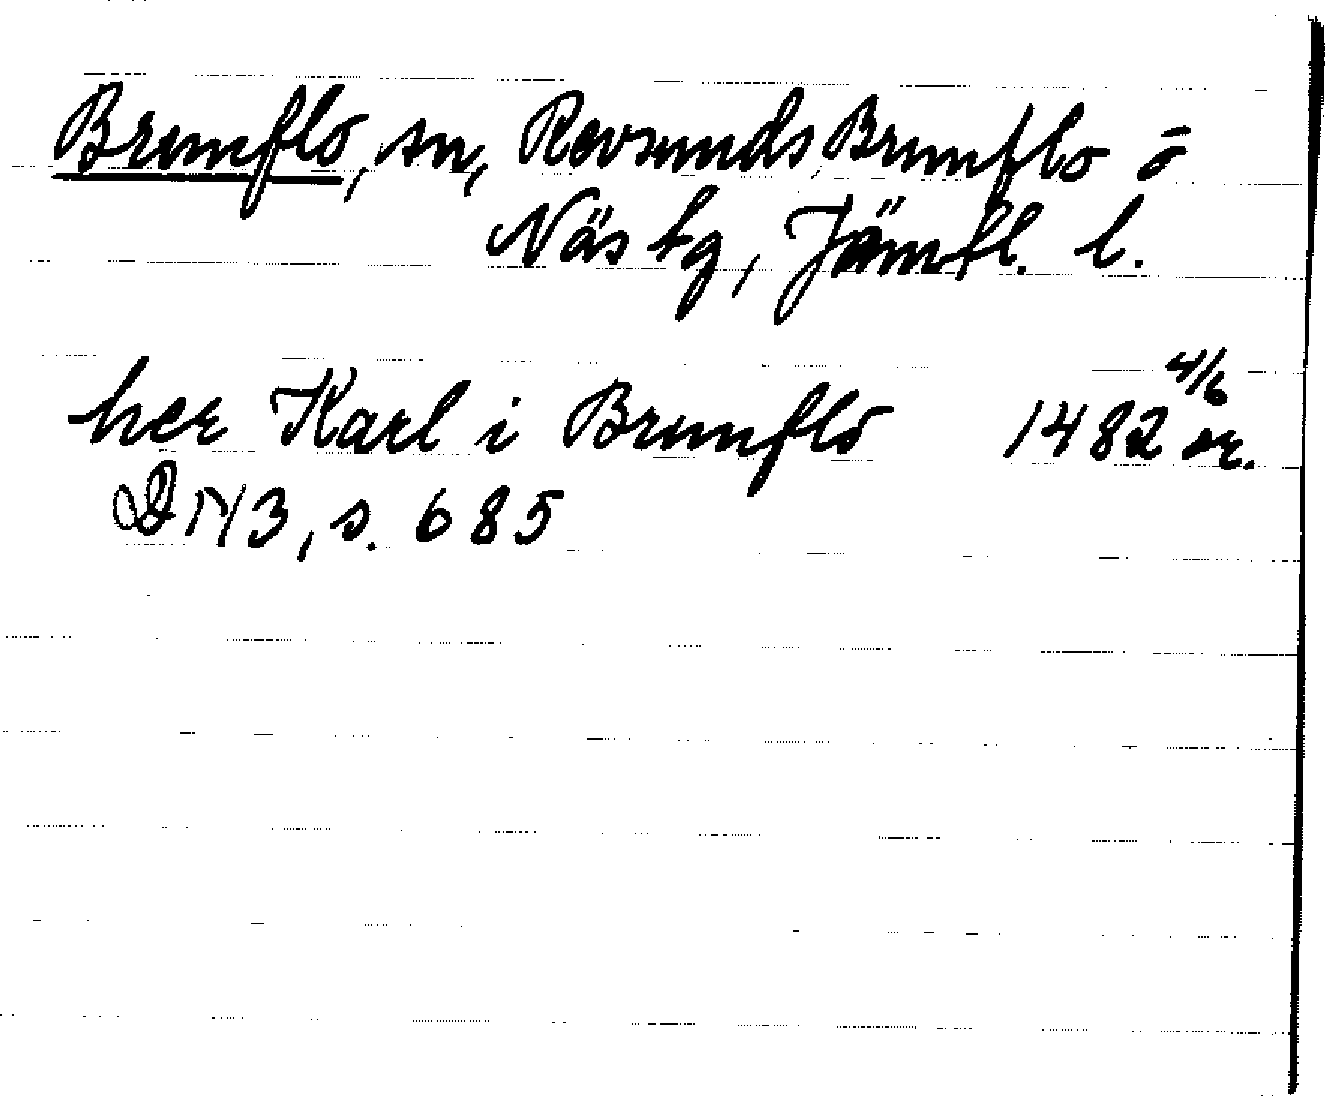 Brunflo, sn, Revsunds, Brunflo o
Näs tg, Jämtl. l.
her Karl i Brunflo 1482 4/6 or.
DN 3, s. 685